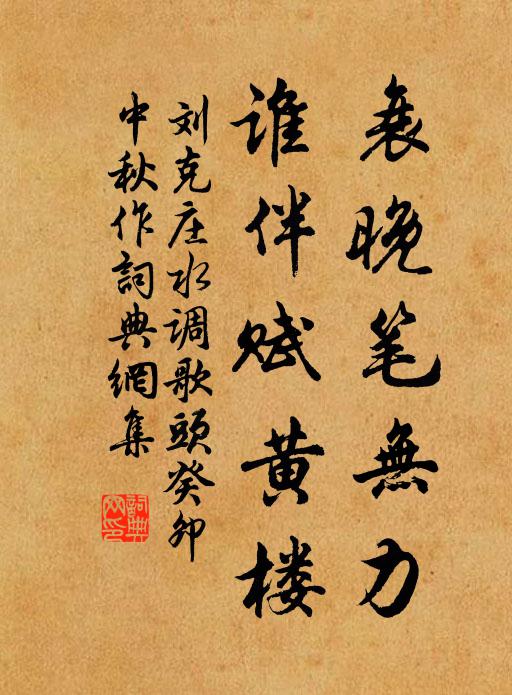 衰晚笔無力
谁伴赋黄楼
刘克庄水调歌頭癸卯
中秋作詞典網集
詞典網印